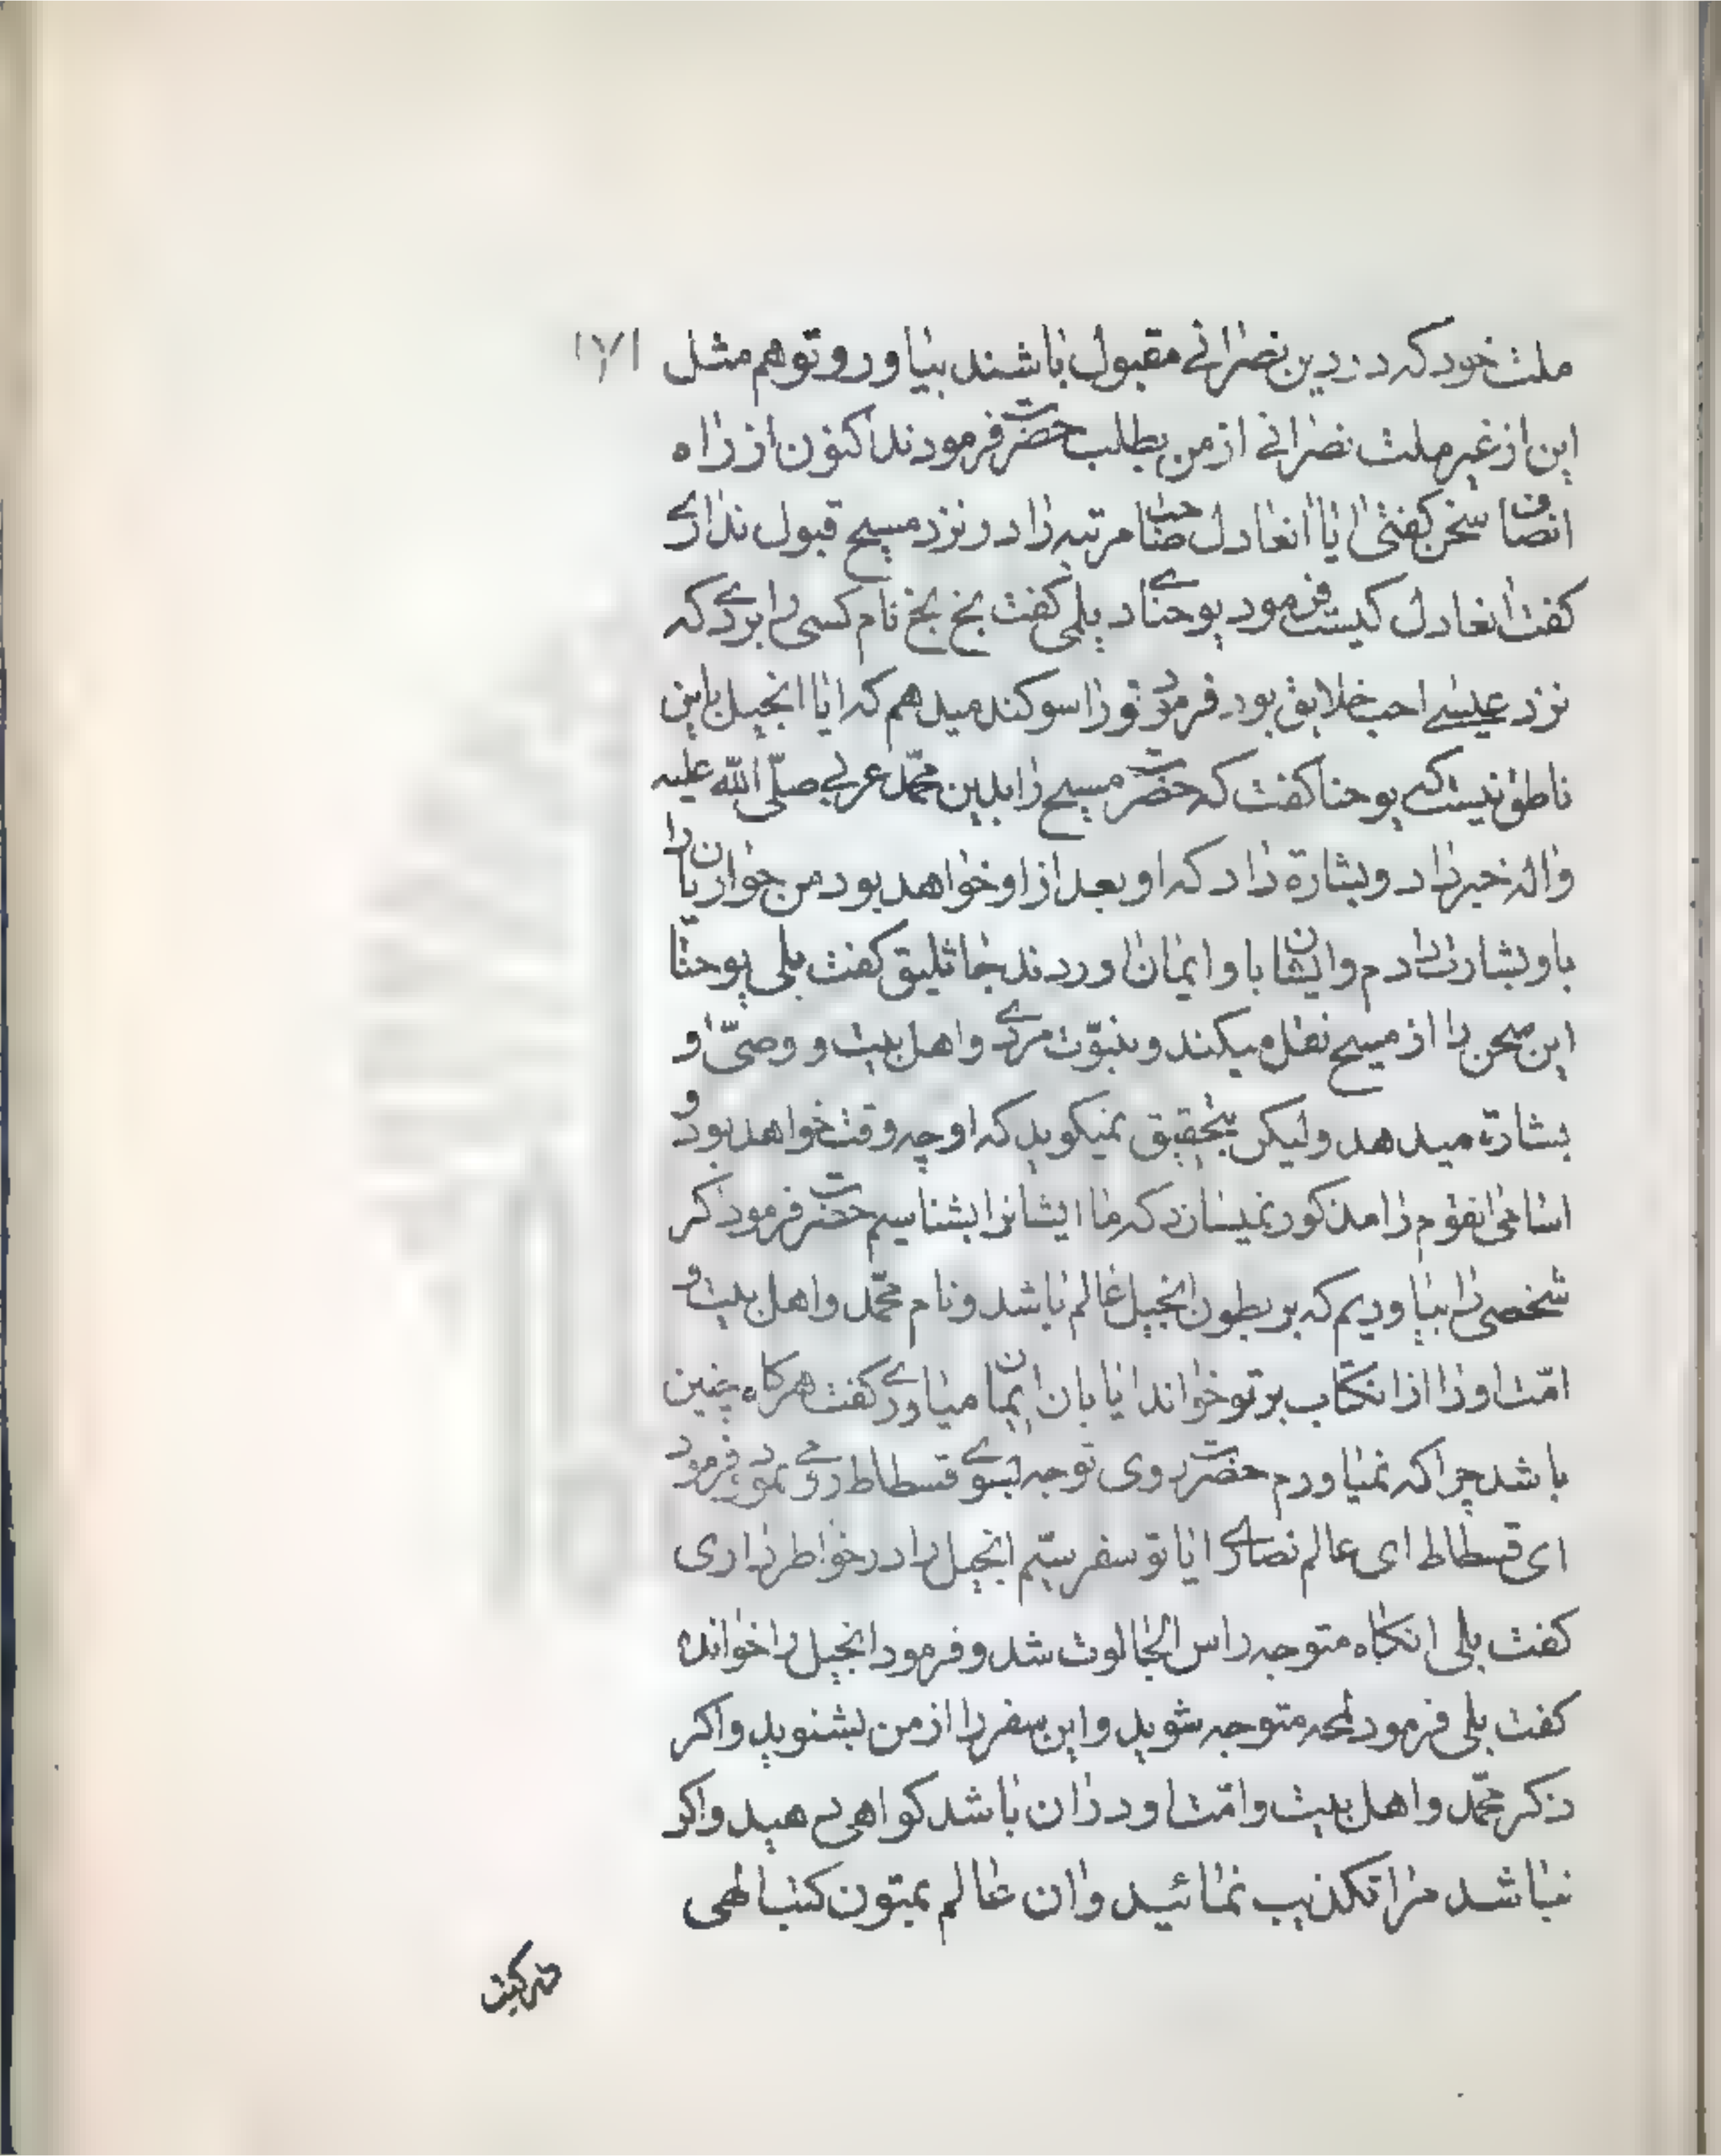 ملت خود که در دین نصرانے مقبول باشند بیاور و تو هم مثل ۱۷۱
این از غیر ملت نصرانے از من بطلب حضرت فرمودند اکنون از راه
انصاف سخن گفتی ایا انعادل صاحب مرتبه را در نزد مسیح قبول ندارے
کفت انعادل کیست فرمود یوحناے دیلمی کفت بخ بخ نام کسی را بردے که
نزد عیسے احب خلایق بود فرمود تو را سوکند میدهم که ایا انجیل باین
ناطق نیست که یوحنا کفت که حضرت مسیح را بدین محمّد عربے صلّی اللّه علیه
واله خبر داد و بشارة داد که او بعد از او خواهد بود من حواریان را
باو بشارت دادم و ایشان باو ایمان اوردند جاثلیق کفت بلی یوحنّا
این سخن را از مسیح نقل میکند و بنبوّت مردے و اهل بیت و وصیّ او
بشارة میدهد و لیکن بتحقیق نمیکوید که او چه وقت خواهد بود و
اسامی انقوم را مذکور نمیسازد که ما ایشانرا بشناسیم حضرت فرمود کر
شخصی را بیاوریم که بر بطون انجیل عالم باشد و نام محمّد و اهل بیت و
امّت او را از انکتاب بر تو خواند ایا بان ایمان میاورے کفت هرکاه چنین
باشد چرا که نمیاورم حضرت روی توجه بسوے قسطاط رومے نمود فرمود
ای قسطاط ای عالم نصارے ایا تو سفر سیّم انجیل را در خواطر داری
کفت بلی انکاه متوجه راس الجالوث شد و فرمود انجیل را خوانده
کفت بلی فرمود لمحه متوجه شوید و این سفر را از من بشنوید و اکر
ذکر محمّد و اهل بیت و امّت او در ان باشد کواهی دهید و اکر
نباشد مرا تکذیب نمائید و ان عالم بمتون کتب الهی